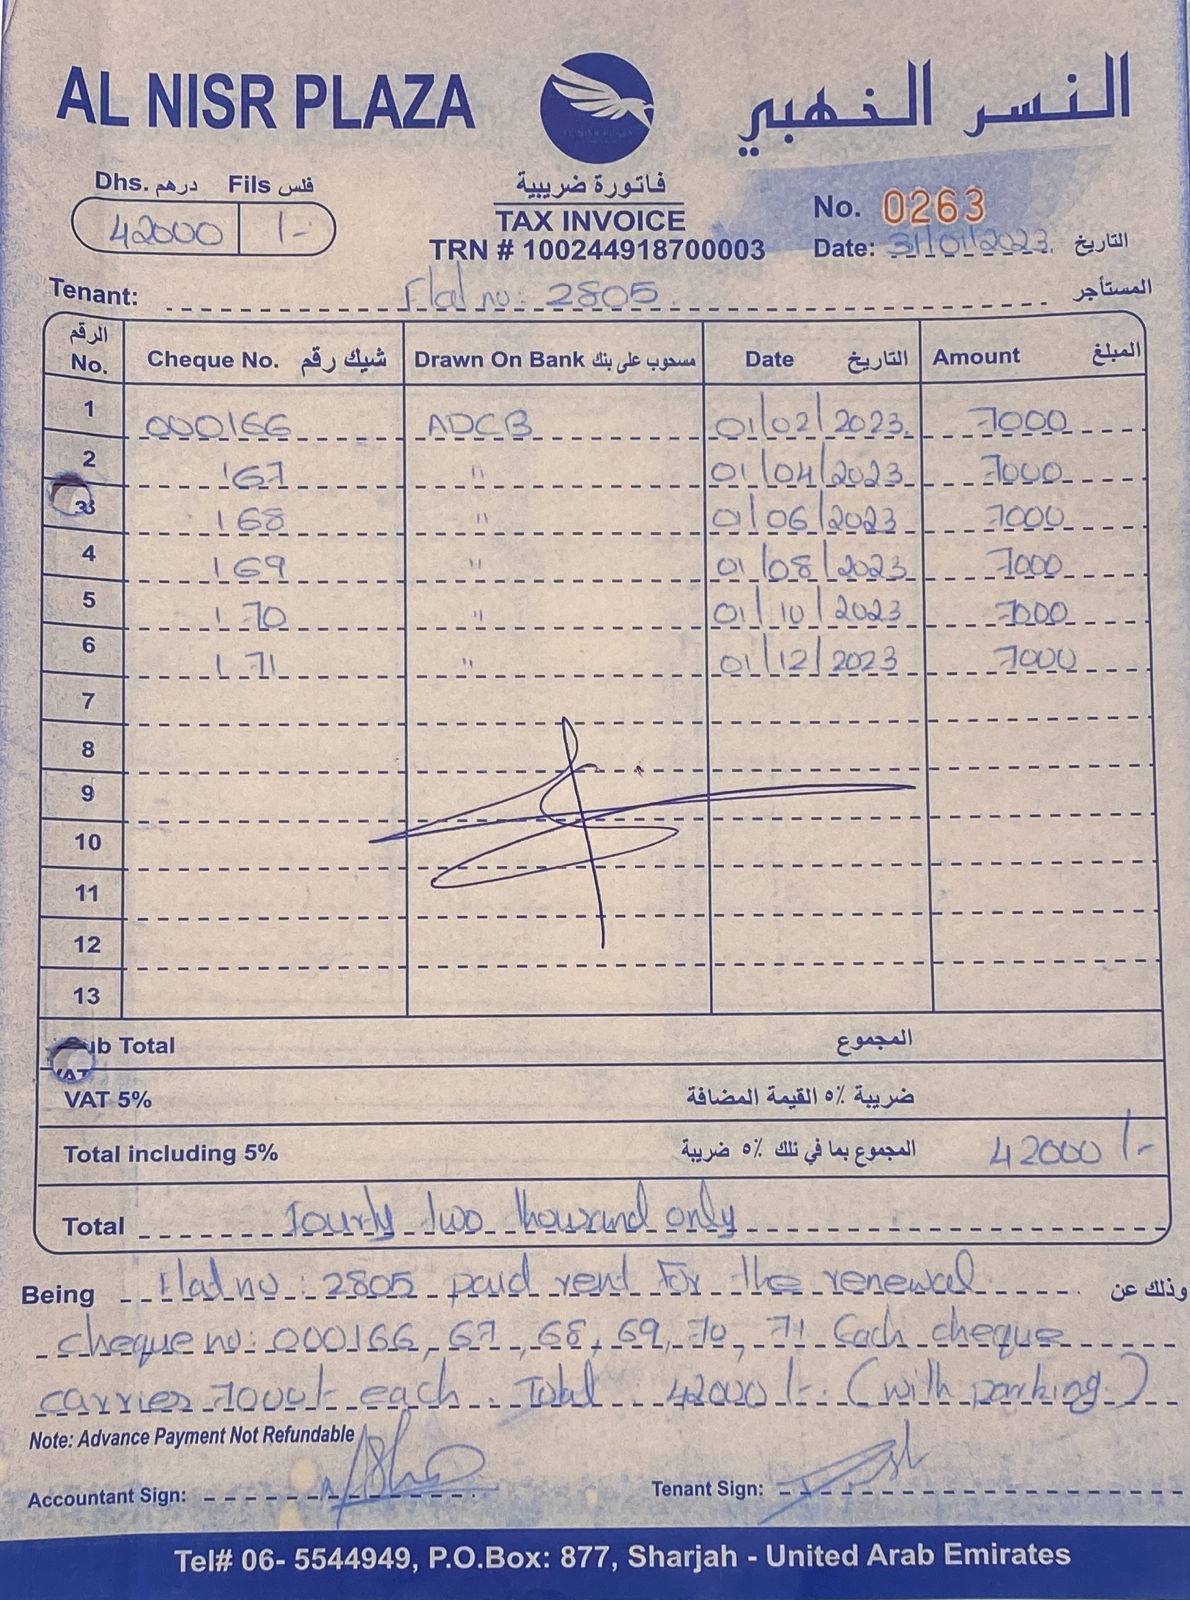 AL NISR PLAZA
AL NISR PLAZA
النسر الذهبي
Dhs. درهم Fils فلس
42000 /-
فاتورة ضريبية
TAX INVOICE
TRN # 100244918700003
No. 0263
Date: 31/01/2023 التاريخ
Tenant: Flat no: 2805 المستأجر
الرقم No. Cheque No. شيك رقم Drawn On Bank مسحوب على بنك Date التاريخ Amount المبلغ
1 000166 ADCB 01/02/2023 7000
2 167 " 01/04/2023 7000
3 168 " 01/06/2023 7000
4 169 " 01/08/2023 7000
5 170 " 01/10/2023 7000
6 171 " 01/12/2023 7000
7
8
9
10
11
12
13
Sub Total المجموع
VAT 5% ضريبة ٥٪ القيمة المضافة
Total including 5% المجموع بما في تلك ٥٪ ضريبة 42000/-
Total Fourty two thousand only
Being Flat no: 2805 paid rent for the renewal وذلك عن
cheque no: 000166, 67, 68, 69, 70, 71 Each cheque
carries 7000/- each. Total 42000/-. (with parking.)
Note: Advance Payment Not Refundable
Accountant Sign: Tenant Sign:
Tel# 06- 5544949, P.O.Box: 877, Sharjah - United Arab Emirates